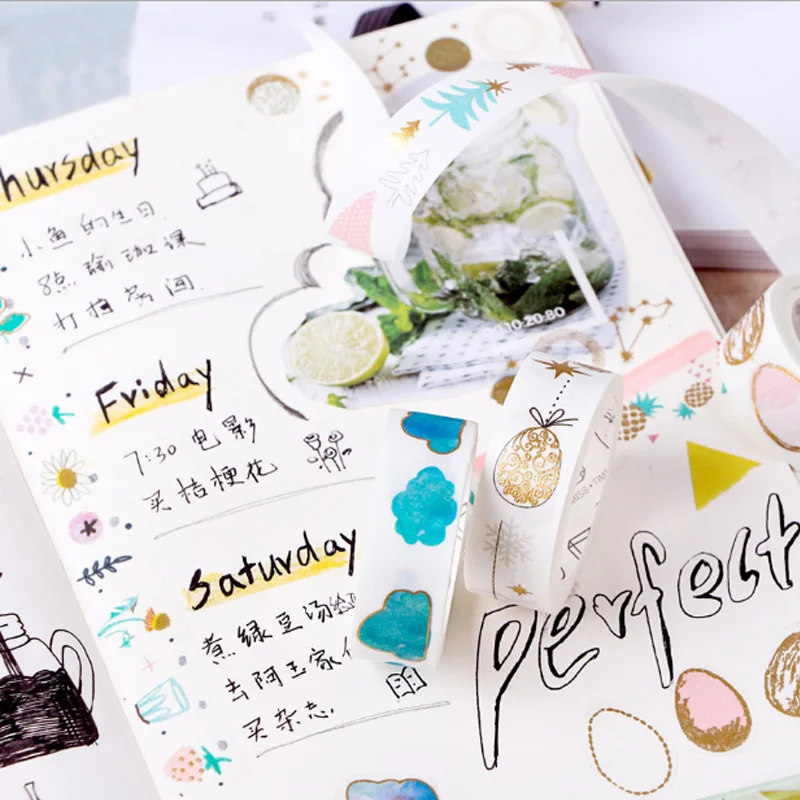 hursday
小鱼的生日.
8点瑜珈课
打扫房间.
Friday
7:30 电影
买桔梗花
Saturday
煮绿豆汤
去阿玉家
买杂志.
10:20:80
perfect